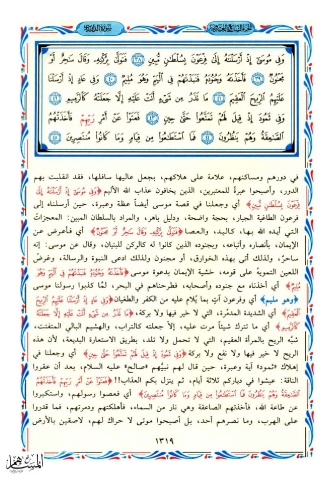 وَفِي مُوسَىٰ إِذْ أَرْسَلْنَاهُ إِلَىٰ فِرْعَوْنَ بِسُلْطَانٍ مُبِينٍ ﴿٣٨﴾ فَتَوَلَّىٰ بِرُكْنِهِ وَقَالَ سَاحِرٌ أَوْ
مَجْنُونٌ ﴿٣٩﴾ فَأَخَذْنَاهُ وَجُنُودَهُ فَنَبَذْنَاهُمْ فِي الْيَمِّ وَهُوَ مُلِيمٌ ﴿٤٠﴾ وَفِي عَادٍ إِذْ أَرْسَلْنَا
عَلَيْهِمُ الرِّيحَ الْعَقِيمَ ﴿٤١﴾ مَا تَذَرُ مِنْ شَيْءٍ أَتَتْ عَلَيْهِ إِلَّا جَعَلَتْهُ كَالرَّمِيمِ ﴿٤٢﴾
وَفِي ثَمُودَ إِذْ قِيلَ لَهُمْ تَمَتَّعُوا حَتَّىٰ حِينٍ ﴿٤٣﴾ فَعَتَوْا عَنْ أَمْرِ رَبِّهِمْ فَأَخَذَتْهُمُ
الصَّاعِقَةُ وَهُمْ يَنْظُرُونَ ﴿٤٤﴾ فَمَا اسْتَطَاعُوا مِنْ قِيَامٍ وَمَا كَانُوا مُنْتَصِرِينَ ﴿٤٥﴾
في دورهم ومساكنهم، علامة على هلاكهم، بجعل عاليها سافلها، فقد انقلبت بهم
الدور، وأصبحوا عبرة للمعتبرين، الذين يخافون عذاب الله الأليم ﴿وَفِي مُوسَىٰ إِذْ أَرْسَلْنَاهُ إِلَىٰ
فِرْعَوْنَ بِسُلْطَانٍ مُبِينٍ﴾ أي وجعلنا في قصة موسى أيضاً عظة وعبرة، حين أرسلناه إلى
فرعون الطاغية الجبار، بحجة واضحة، ودليل باهر، والمراد بالسلطان المبين: المعجزات
التي أيده الله بها، كاليد، والعصا ﴿فَتَوَلَّىٰ بِرُكْنِهِ وَقَالَ سَاحِرٌ أَوْ مَجْنُونٌ﴾ أي فأعرض عن
الإيمان، بأنصاره وأتباعه، وبجنوده الذين كانوا له كالركن للبنيان، وقال عن موسى: إنه
ساحر، ولذلك أتى بهذه الخوارق، أو مجنون ولذلك ادعى النبوة والرسالة، وغرضُ
اللعين التمويهُ على قومه، خشية الإيمان بدعوة موسى ﴿فَأَخَذْنَاهُ وَجُنُودَهُ فَنَبَذْنَاهُمْ فِي الْيَمِّ وَهُوَ
مُلِيمٌ﴾ أي أخذناه مع جنوده وأصحابه، فطرحناهم في البحر، لمَّا كذبوا رسولنا موسى
﴿وهو مليم﴾ أي وفرعون آتٍ بما يُلام عليه من الكفر والطغيان ﴿وَفِي عَادٍ إِذْ أَرْسَلْنَا عَلَيْهِمُ الرِّيحَ
الْعَقِيمَ﴾ أي الشديدة المدمّرة، التي لا خير فيها ولا بركة، ﴿مَا تَذَرُ مِنْ شَيْءٍ أَتَتْ عَلَيْهِ إِلَّا جَعَلَتْهُ
كَالرَّمِيمِ﴾ أي ما تترك شيئاً مرت عليه، إلاَّ جعلته كالتراب، والهشيم البالي المتفتت،
شبَّه الريح بالمرأة العقيم، التي لا تحمل ولا تلد، بطريق الاستعارة البديعة، لأن هذه
الريح لا خير فيها ولا نفع ولا بركة ﴿وَفِي ثَمُودَ إِذْ قِيلَ لَهُمْ تَمَتَّعُوا حَتَّىٰ حِينٍ﴾ أي وجعلنا في
إهلاك «ثمود» آية وعبرة، حين قال لهم نبيُّهم «صالح» عليه السلام، بعد أن عقروا
الناقة: عيشوا في دياركم ثلاثة أيام، ثم ينزل بكم العذاب!! ﴿فَعَتَوْا عَنْ أَمْرِ رَبِّهِمْ فَأَخَذَتْهُمُ
الصَّاعِقَةُ وَهُمْ يَنْظُرُونَ فَمَا اسْتَطَاعُوا مِنْ قِيَامٍ وَمَا كَانُوا مُنْتَصِرِينَ﴾ أي فعصوا رسولهم، واستكبروا
عن طاعة الله، فأخذتهم الصاعقة وهي نار من السماء، فأهلكتهم ودمرتهم، فما قدروا
على الهرب، وما نصرهم أحد، بل أصبحوا موتى لا حراك لهم، لاصقين بالأرض
١٣١٩